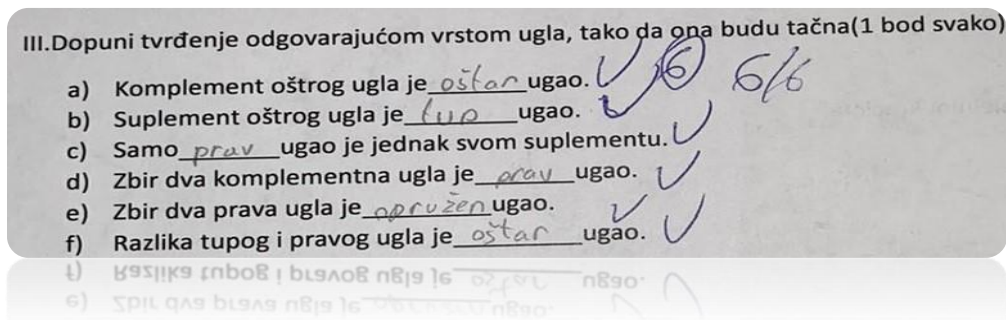 III.Dopuni tvrđenje odgovarajućom vrstom ugla, tako da ona budu tačna(1 bod svako)
6 6/6
a) Komplement oštrog ugla je oštar ugao.
b) Suplement oštrog ugla je tup ugao.
c) Samo prav ugao je jednak svom suplementu.
d) Zbir dva komplementna ugla je prav ugao.
e) Zbir dva prava ugla je opružen ugao.
f) Razlika tupog i pravog ugla je oštar ugao.